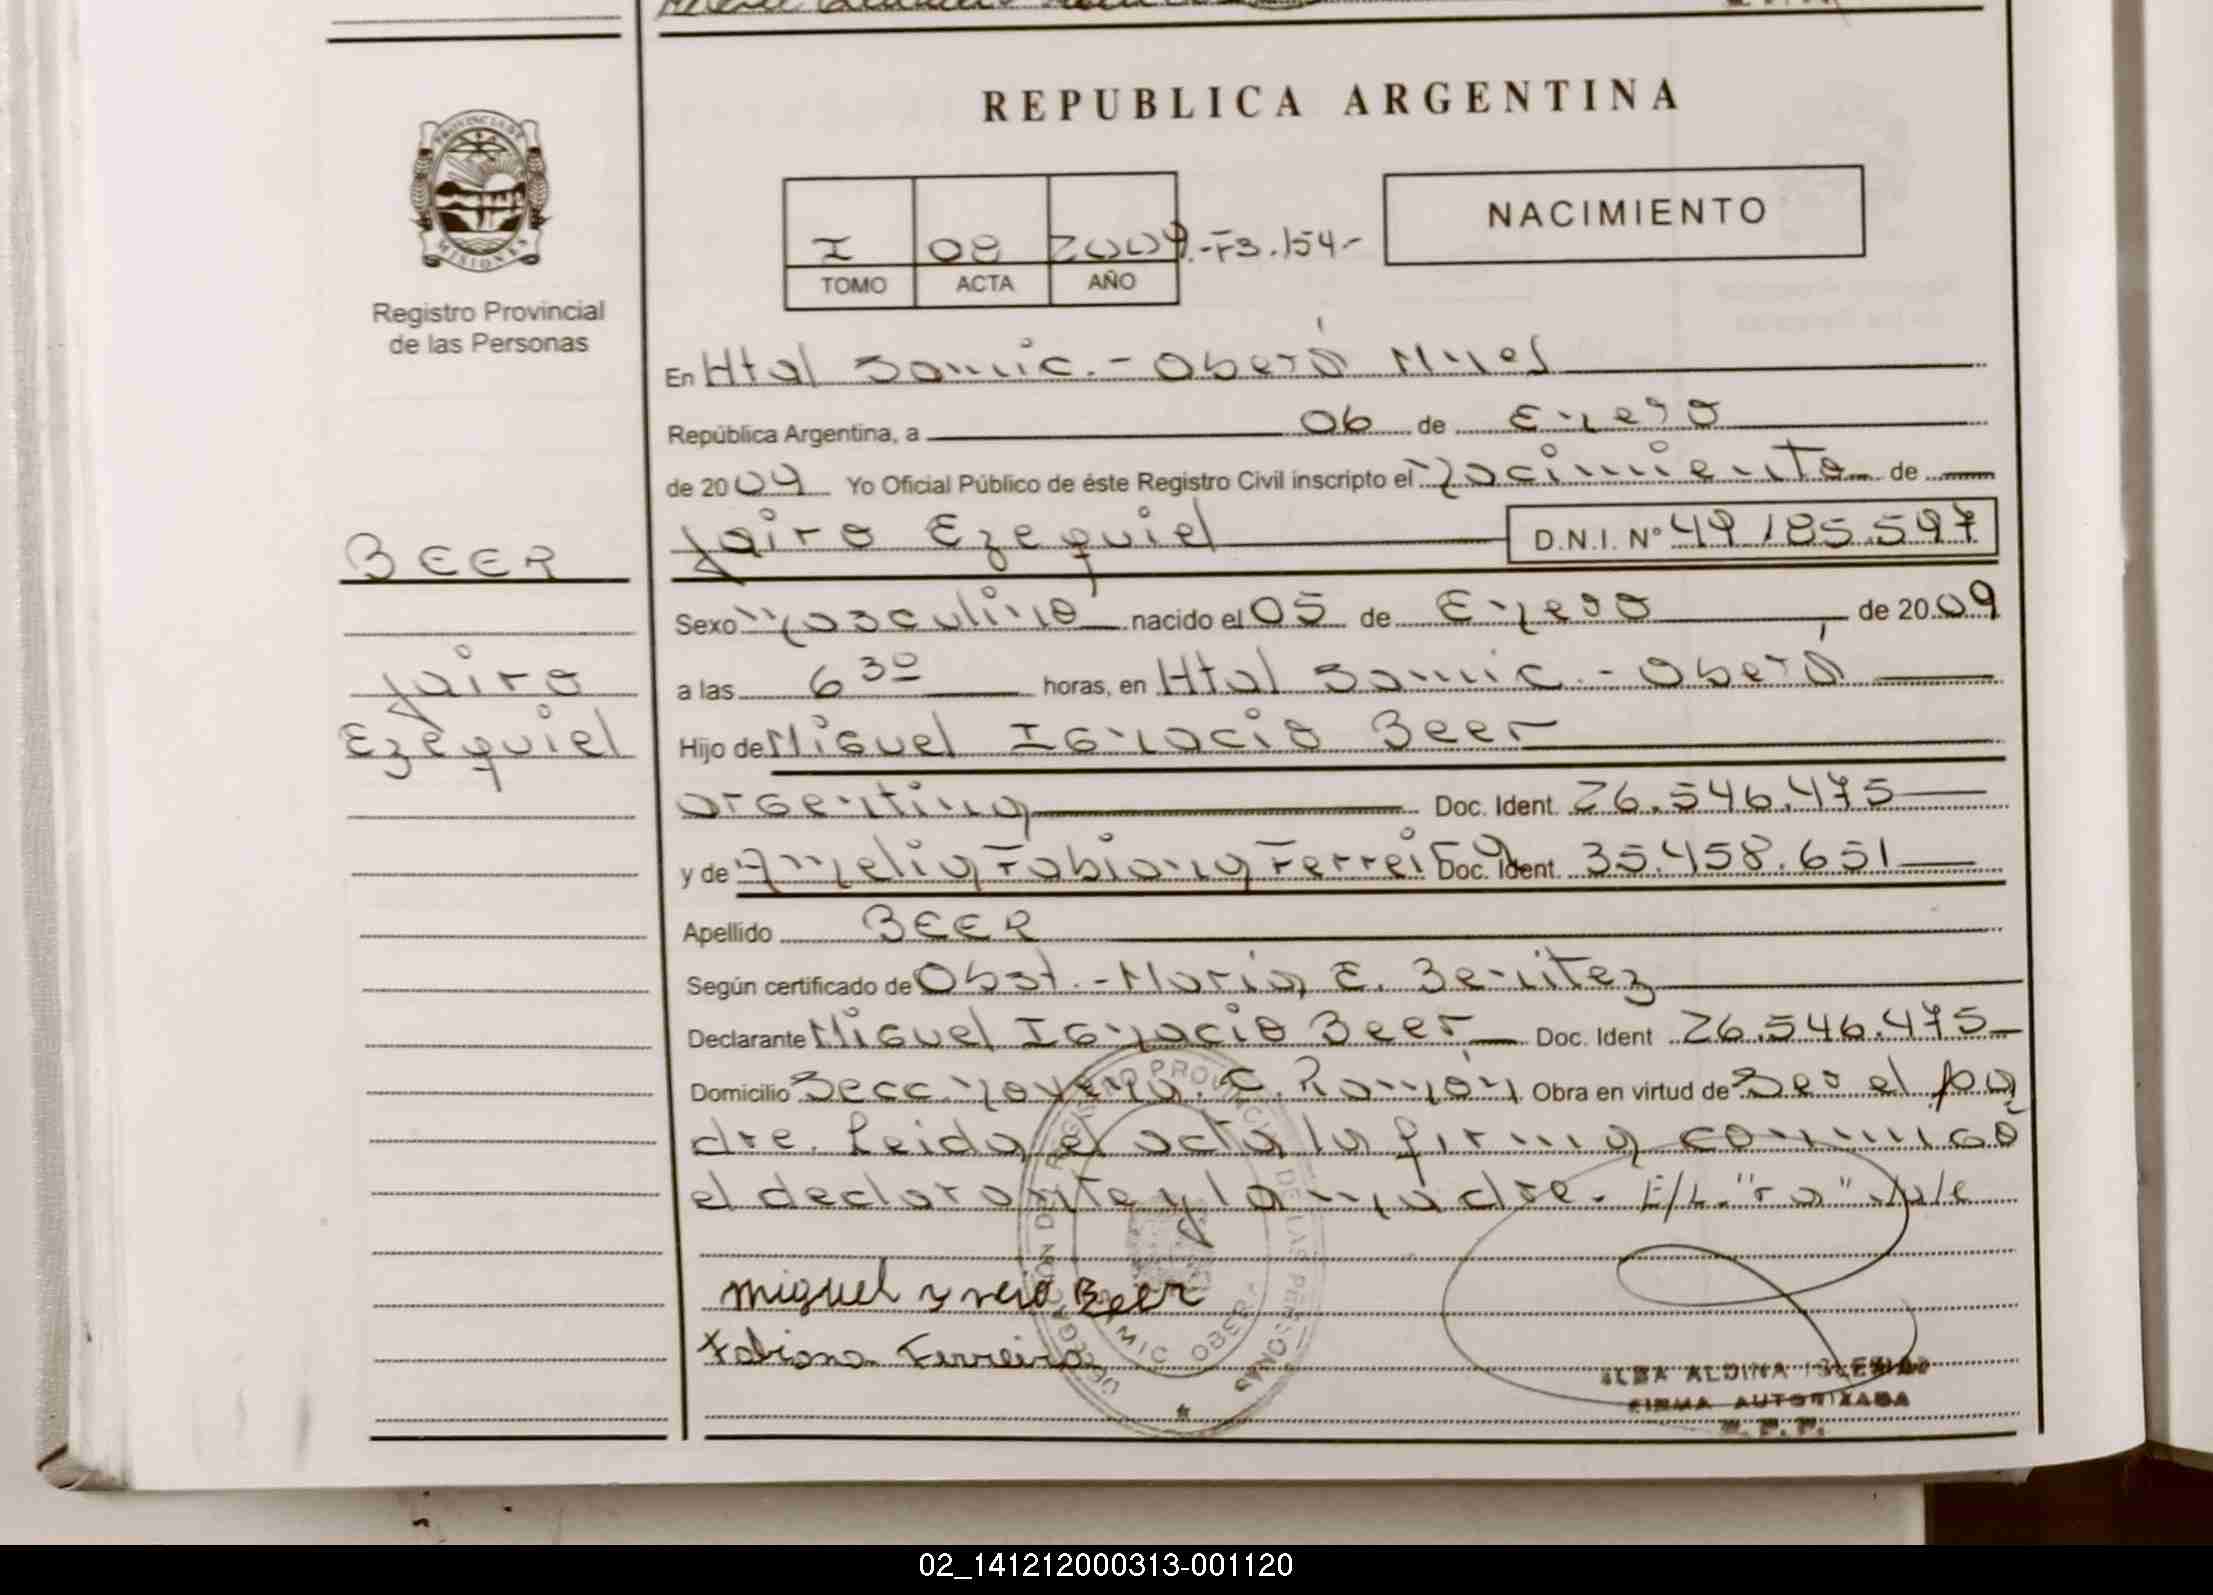 REPUBLICA ARGENTINA
PROVINCIA DE
MISIONES
Registro Provincial
de las Personas
I 08 2009.-F3.154-
TOMO ACTA AÑO
NACIMIENTO
En Htal Samic.- Oberá Mnes
República Argentina, a 06 de Enero
de 2009 Yo Oficial Público de éste Registro Civil inscripto el nacimiento de
BEER
Jairo Ezequiel D.N.I. Nº 49.185.597
Sexo masculino nacido el 05 de Enero de 2009
Jairo
a las 6 30 horas, en Htal Samic.- Oberá
Ezequiel
Hijo de Miguel Ignacio Beer
argentina Doc. Ident. 26.546.475
y de Amelia Fabiana Ferreira Doc. Ident. 35.458.651
Apellido BEER
Según certificado de Obst.- Maria E. Benitez
Declarante Miguel Ignacio Beer Doc. Ident 26.546.475
Domicilio C. Ramón Obra en virtud de Ser el pa
dre. Leida el acta la firma conmigo
el declarante y la madre. E/L. "ra" Vale
miguel Beer
Fabiana Ferreira
DELEGACION DEL REGISTRO PROVINCIAL DE LAS PERSONAS
SAMIC OBERA
ALBA ALDINA IGLESIAS
FIRMA AUTORIZADA
R. P. P.
02_141212000313-001120